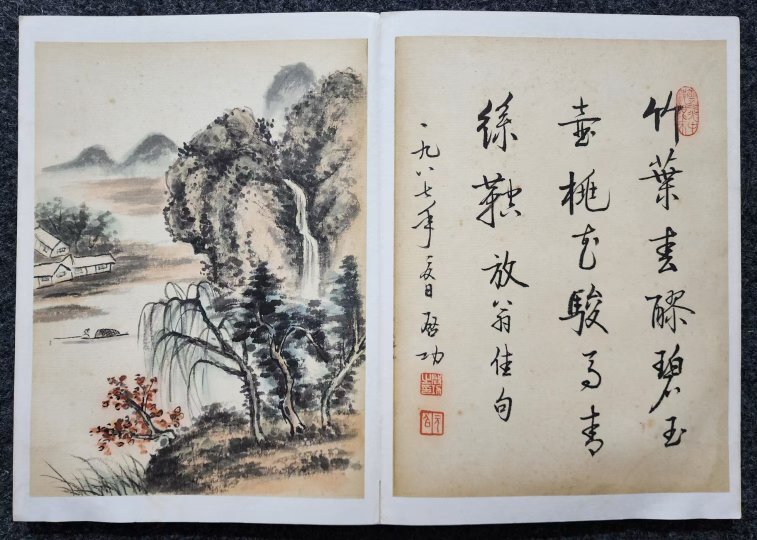 竹葉春醪碧玉
壺桃花駿馬青
絲鞚放翁佳句
一九八七年夏日啟功